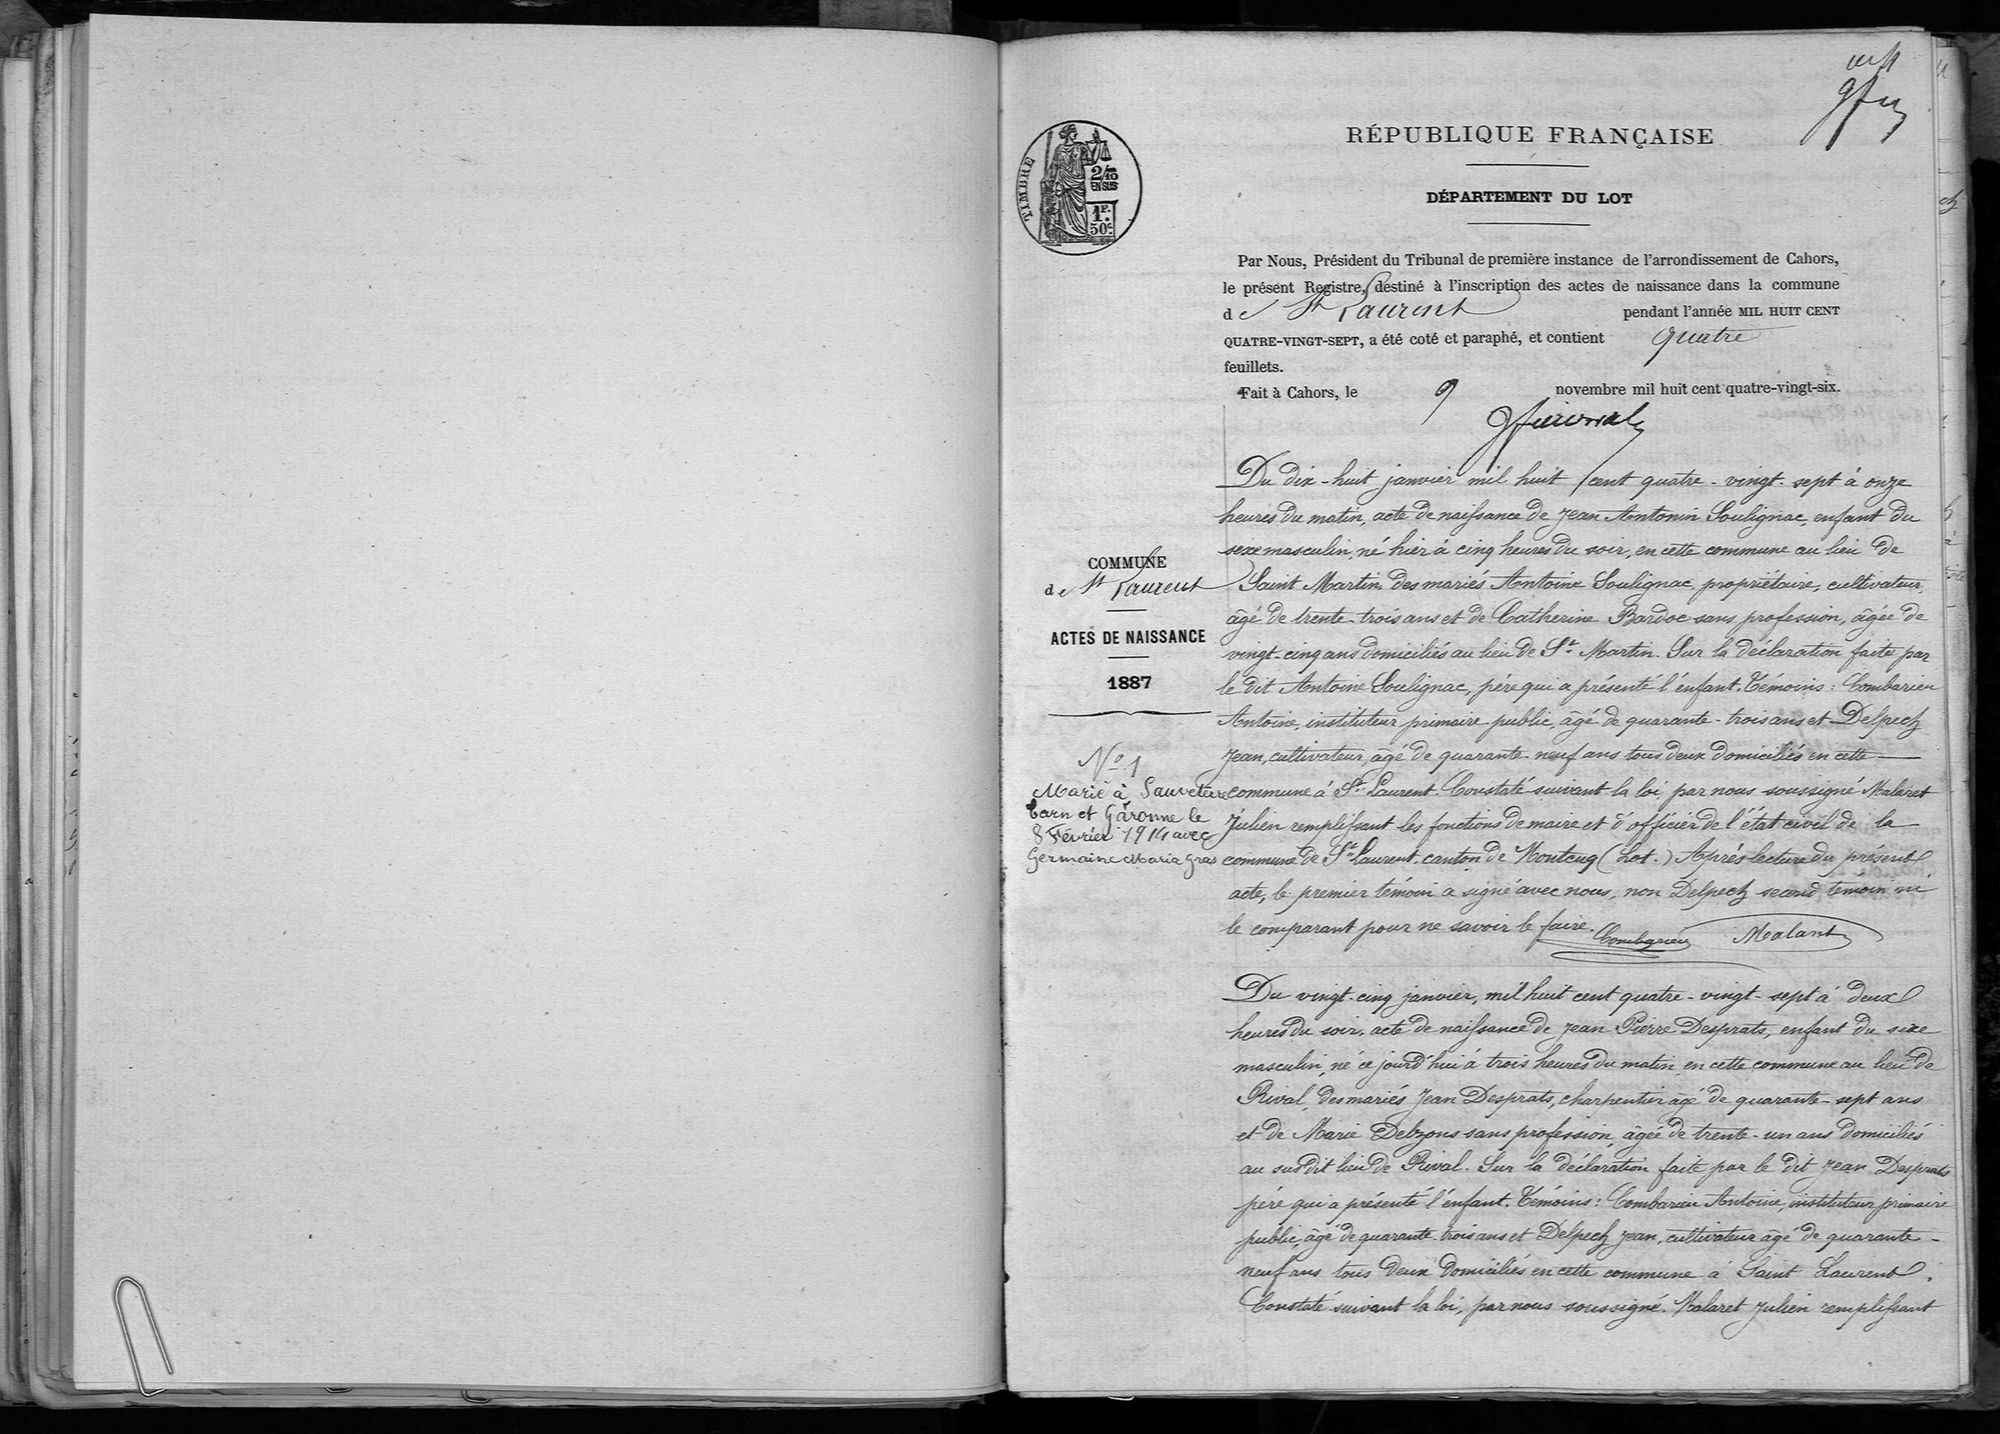 RÉPUBLIQUE FRANÇAISE
DÉPARTEMENT DU LOT
TIMBRE
2/10
EN SUS
1F.
50c.
Par Nous, Président du Tribunal de première instance de l'arrondissement de Cahors,
le présent Registre, destiné à l'inscription des actes de naissance dans la commune
de St Laurent pendant l'année MIL HUIT CENT
QUATRE-VINGT-SEPT, a été coté et paraphé, et contient quatre
feuillets.
Fait à Cahors, le 9 novembre mil huit cent quatre-vingt-six.
COMMUNE
de St Laurent
ACTES DE NAISSANCE
1887
No 1
Marié à Sauveterre
Tarn et Garonne le
8 Février 1914 avec
Germaine Maria Gras
Du dix-huit janvier mil huit cent quatre-vingt-sept à onze
heures du matin, acte de naissance de Jean Antonin Soulignac, enfant du
sexe masculin, né hier à cinq heures du soir, en cette commune au lieu de
Saint Martin, des mariés Antoine Soulignac, propriétaire, cultivateur,
âgé de trente-trois ans et de Catherine Bardoc sans profession, âgée de
vingt-cinq ans domiciliés au lieu de St Martin. Sur la déclaration faite par
le dit Antoine Soulignac, père qui a présenté l'enfant. Témoins: Combarieu
Antoine, instituteur primaire public, âgé de quarante-trois ans et Delpech
Jean, cultivateur, âgé de quarante-neuf ans tous deux domiciliés en cette
commune à St Laurent. Constaté suivant la loi par nous soussigné Malaret
Julien remplissant les fonctions de maire et d'officier de l'état civil de la
commune de St Laurent, canton de Montcuq (Lot.) Après lecture du présent
acte, le premier témoin a signé avec nous, non Delpech second témoin ni
le comparant pour ne savoir le faire.
Combarieu Malaret
Du vingt-cinq janvier, mil huit cent quatre-vingt-sept à deux
heures du soir, acte de naissance de Jean Pierre Desprats, enfant du sexe
masculin, né ce jourd'hui à trois heures du matin, en cette commune au lieu de
Rival, des mariés Jean Desprats, charpentier âgé de quarante-sept ans
et de Marie Delzons sans profession, âgée de trente-un ans domiciliés
au susdit lieu de Rival. Sur la déclaration faite par le dit Jean Desprats
père qui a présenté l'enfant. Témoins: Combarieu Antoine, instituteur primaire
public, âgé de quarante-trois ans et Delpech Jean, cultivateur âgé de quarante-
neuf ans tous deux domiciliés en cette commune à Saint Laurent.
Constaté suivant la loi, par nous soussigné. Malaret Julien remplissant